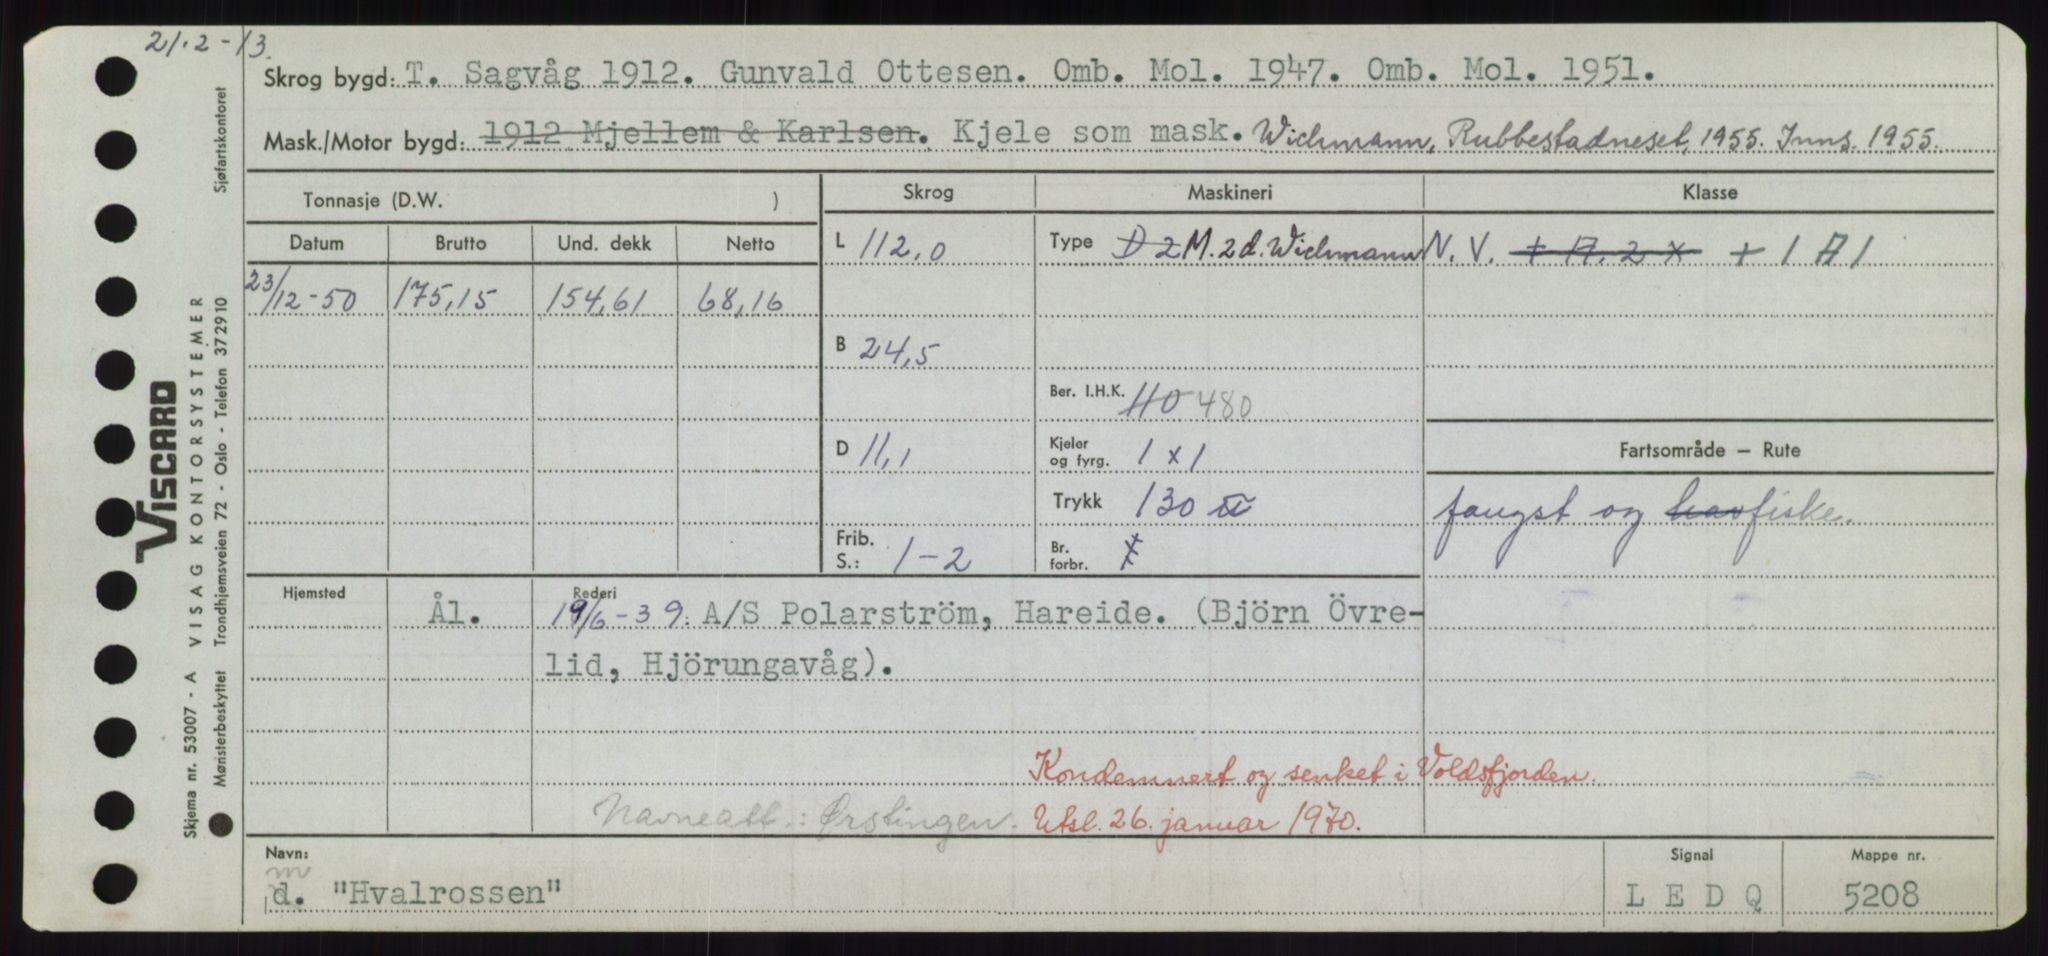 21.2-13.
Skrog bygd: T. Sagvåg 1912. Gunvald Ottesen. Omb. Mol. 1947. Omb. Mol. 1951.
Mask./Motor bygd: 1912 Mjellem & Karlsen. Kjele som mask. Wichmann, Rubbestadneset, 1955. Inns. 1955.
Tonnasje (D.W. )
Skrog
Maskineri
Klasse
Datum Brutto Und. dekk Netto
L 112,0
Type D 2 M. 2 d. Wichmann
N. V. + A. 2 x + 1 A 1
23/12-50 175,15 154,61 68,16
B 24,5
Ber. I.H.K. 110 480
D 11,1
Kjeler og fyrg. 1 x 1
Fartsområde — Rute
Trykk 130
fangst og havfiske.
Frib. S.: 1-2
Br. forbr.
Hjemsted
Rederi
Ål. 19/6-39. A/S Polarström, Hareide. (Björn Övre-
lid, Hjörungavåg).
Kondemnert og senket i Voldsfjorden.
Navneatt.: Ørstingen. Utsl. 26. januar 1970.
Navn:
m
d. "Hvalrossen"
Signal
LEDQ
Mappe nr.
5208
VISCARD
Skjema nr. 53007 - A VISAG KONTORSYSTEMER
Mønsterbeskyttet Trondhjemsveien 72 - Oslo - Telefon 372910 Sjøfartskontoret